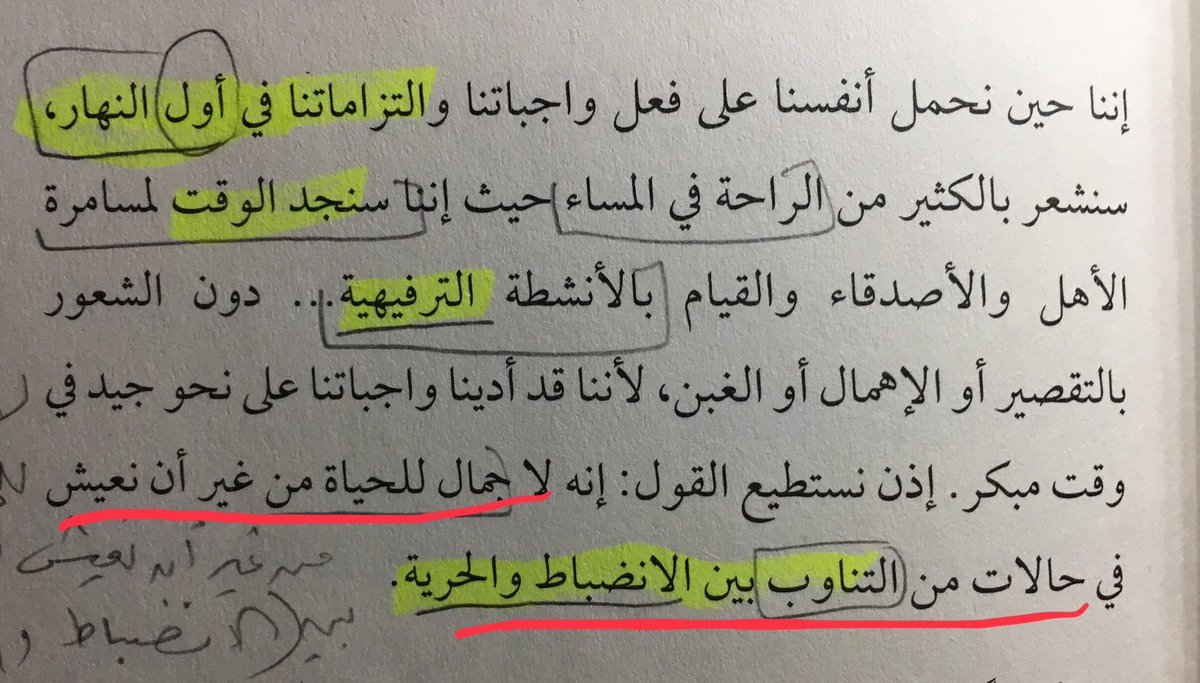 إننا حين نحمل أنفسنا على فعل واجباتنا والتزاماتنا في أول النهار،
سنشعر بالكثير من الراحة في المساء حيث إننا سنجد الوقت لمسامرة
الأهل والأصدقاء والقيام بالأنشطة الترفيهية... دون الشعور
بالتقصير أو الإهمال أو الغبن، لأننا قد أدينا واجباتنا على نحو جيد في
وقت مبكر. إذن نستطيع القول: إنه لا جمال للحياة من غير أن نعيش
في حالات من التناوب بين الانضباط والحرية.
من غير أن نعيش
بين الانضباط و